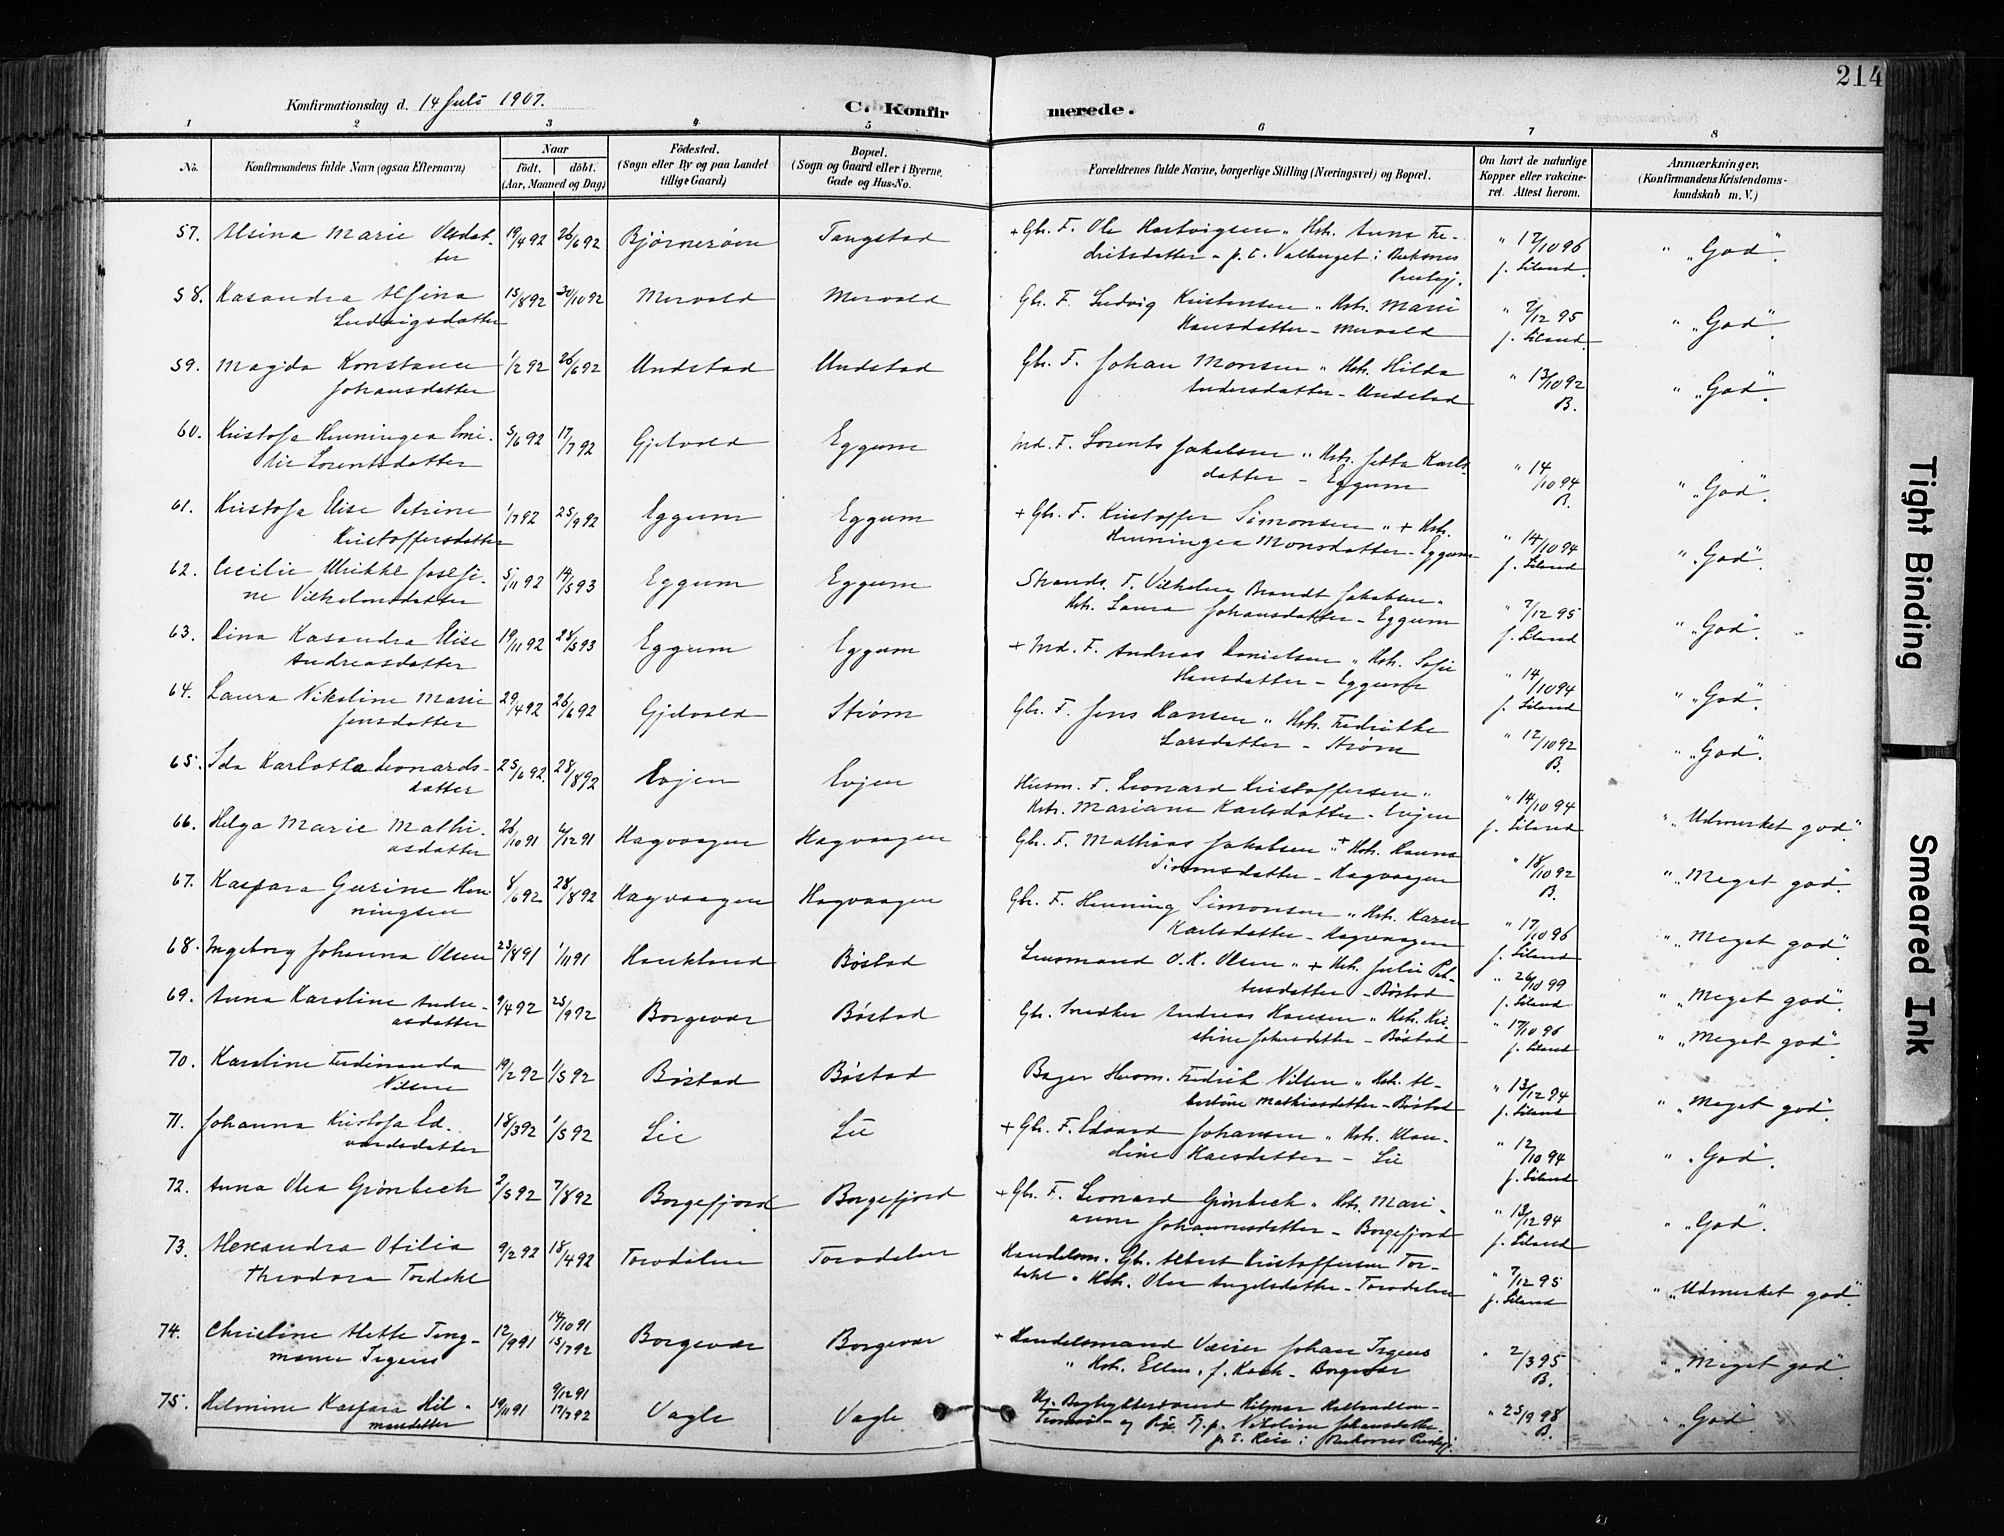 214
Konfirmationsdag d. 14 Juli 1907.
C. Konfir merede.
1 2 3 4 5 6 7 8
No.
Konfirmandens fulde Navn (ogsaa Efternavn)
Naar
födt. döbt.
(Aar, Maaned og Dag)
Födested.
(Sogn eller By og paa Landet
tillige Gaard)
Bopæl.
(Sogn og Gaard eller i Byerne,
Gade og Hus-No.
Forældrenes fulde Navne, borgerlige Stilling (Næringsvei) og Bopæl.
Om havt de naturlige
Kopper eller vakcine-
ret. Attest herom.
Anmærkninger.
(Konfirmandens Kristendoms-
kundskab m. V.)
57. Marie Olsdat- 19/4 92 26/6 92 Bjørnerøen Tangstad + Gbr. F. Ole Hartvigsen " Hst. Anna Fre- " 17/10 96 " "God".
ter driksdatter - p. t. i Buksnes f. Siland.
Prestegj.
58. Kasandra 15/8 92 30/10 92 Mervold Mervold Gbr. F. Ludvig Kristensen " Hst. Marie " 7/12 95 " "God".
Ludvigsdatter Hansdatter - Mervold f. Siland.
59. Magda Konstanse 1/2 92 26/6 92 Undstad Undstad Gbr. F. Johan Monsen " Hst. Hilda " 13/10 92 " "God".
Johansdatter Andersdatter - Undstad B.
60. Kristofa Henningea Emi- 5/6 92 17/7 92 Gjelvold Eggum Ind. F. Lorents Jakobsen " Hst. Jetta Karls- " 14/10 94 " "God".
lie Lorentsdatter datter - Eggum B.
61. Kristofa Elise Petrine 1/7 92 25/9 92 Eggum Eggum + Gbr. F. Kristoffer Simonsen " + Hst. " 14/10 94 " "God".
Kristoffersdatter Henningea Monsdatter - Eggum f. Siland
62. Cecilie Ulrikke Josefi- 5/11 92 14/5 93 Eggum Eggum Strands. F. Vilhelm Brandt Jakobsen " " 7/12 95 " "God".
ne Vilhelmsdatter Hst. Laura Johansdatter - Eggum f. Siland
63. Dina Kasandra Elise 19/11 92 28/5 93 Eggum Eggum + Ind. F. Andreas Danielsen " Hst. Sofie " 14/10 94 " "God".
Andreasdatter Hansdatter - Eggum f. Siland
64. Laura Nikoline Marie 29/4 92 26/6 92 Gjelvold Strøm Gbr. F. Jens Hansen " Hst. Fredrikke " 12/10 92 " "God".
Jensdatter Larsdatter - Strøm B.
65. Ida Karlotta Leonards- 25/6 92. 28/8 92 Evjen Evjen Husm. F. Leonard Kristoffersen " " 14/10 94 " "Udmerket god".
datter Hst. Mariane Karlsdatter - Evjen f. Siland
66. Helga Marie Mathi- 26/10 91 6/12 91 Hagvaagen Hagvaagen Gbr. F. Mathias Jakobsen " + Hst. Hanna " 18/10 92 " "Meget god".
asdatter Simonsdatter - Hagvaagen B.
67. Kaspara Gurine Hen- 8/6 92 28/8 92 Hagvaagen Hagvaagen Gbr. F. Henning Simonsen " Hst. Karen " 17/10 96 " "Meget god".
ningsen Karlsdatter - Hagvaagen f. Siland
68. Ingeborg Johanna Olsen 23/8 91 1/11 91 Haukland Bøstad Lensmand O. K. Olsen " + Hst. Julie Pet- " 26/10 99 " "Meget god".
tersdatter - Bøstad f. Siland
69. Anna Karoline Andre- 9/4 92 25/9 92 Borgevær Bøstad Gbr. Snedker Andreas Hansen " Hst. Kri- " 17/10 96 " "Meget god".
asdatter stine Johansdatter - Bøstad f. Siland
70. Karoline Ferdinanda 19/2 92 1/5 92 Bøstad Bøstad Bager Husm. Fredrik Nilsen " Hst. Al- " 13/12 94 " "Meget god".
Nilsen bertine Mathiasdatter - Bøstad f. Siland
71. Johanna Kristofa Ed- 18/3 92 1/5 92 Lie Lie + Gbr. F. Edvard Johansen " Hst. Klau- " 12/10 94 " "God".
vardsdatter dine Hansdatter - Lie f. Siland
72. Anna Olea Grønbech 2/5 92 7/8 92 Borgefjord Borgefjord + Gbr. F. Leonard Grønbech " Hst. Mari- " 13/12 94 " "God".
anne Johannesdatter - Borgefjord f. Siland
73. Alexandra Otilia 9/2 92 18/4 92 Torvdalen Torvdalen Handelsm. Gbr. Albert Kristoffersen Tor- " 7/12 95 " "Udmerket god".
Theodora Tordahl dahl " Hst. Olea Angelsdatter - Torvdalen f. Siland
74. Christine Mette Ting- 12/9 91 14/10 91 Borgevær Borgevær + Handelsmand Væier Johan Irgens " 2/3 95 " "Meget god".
Irgens 15/7 92 " Hst. Ellen, f. Koch - Borgevær B.
75. Helmine Kaspara Hil- 19/11 91 9/12 91 Vagle Vagle Hilmar " 25/9 98 " "God".
marsdatter 17/7 92 og Pige Nikoline Johansdatter B.
p. t. i Buksnes Prestegj.
Tight Binding
Smeared Ink